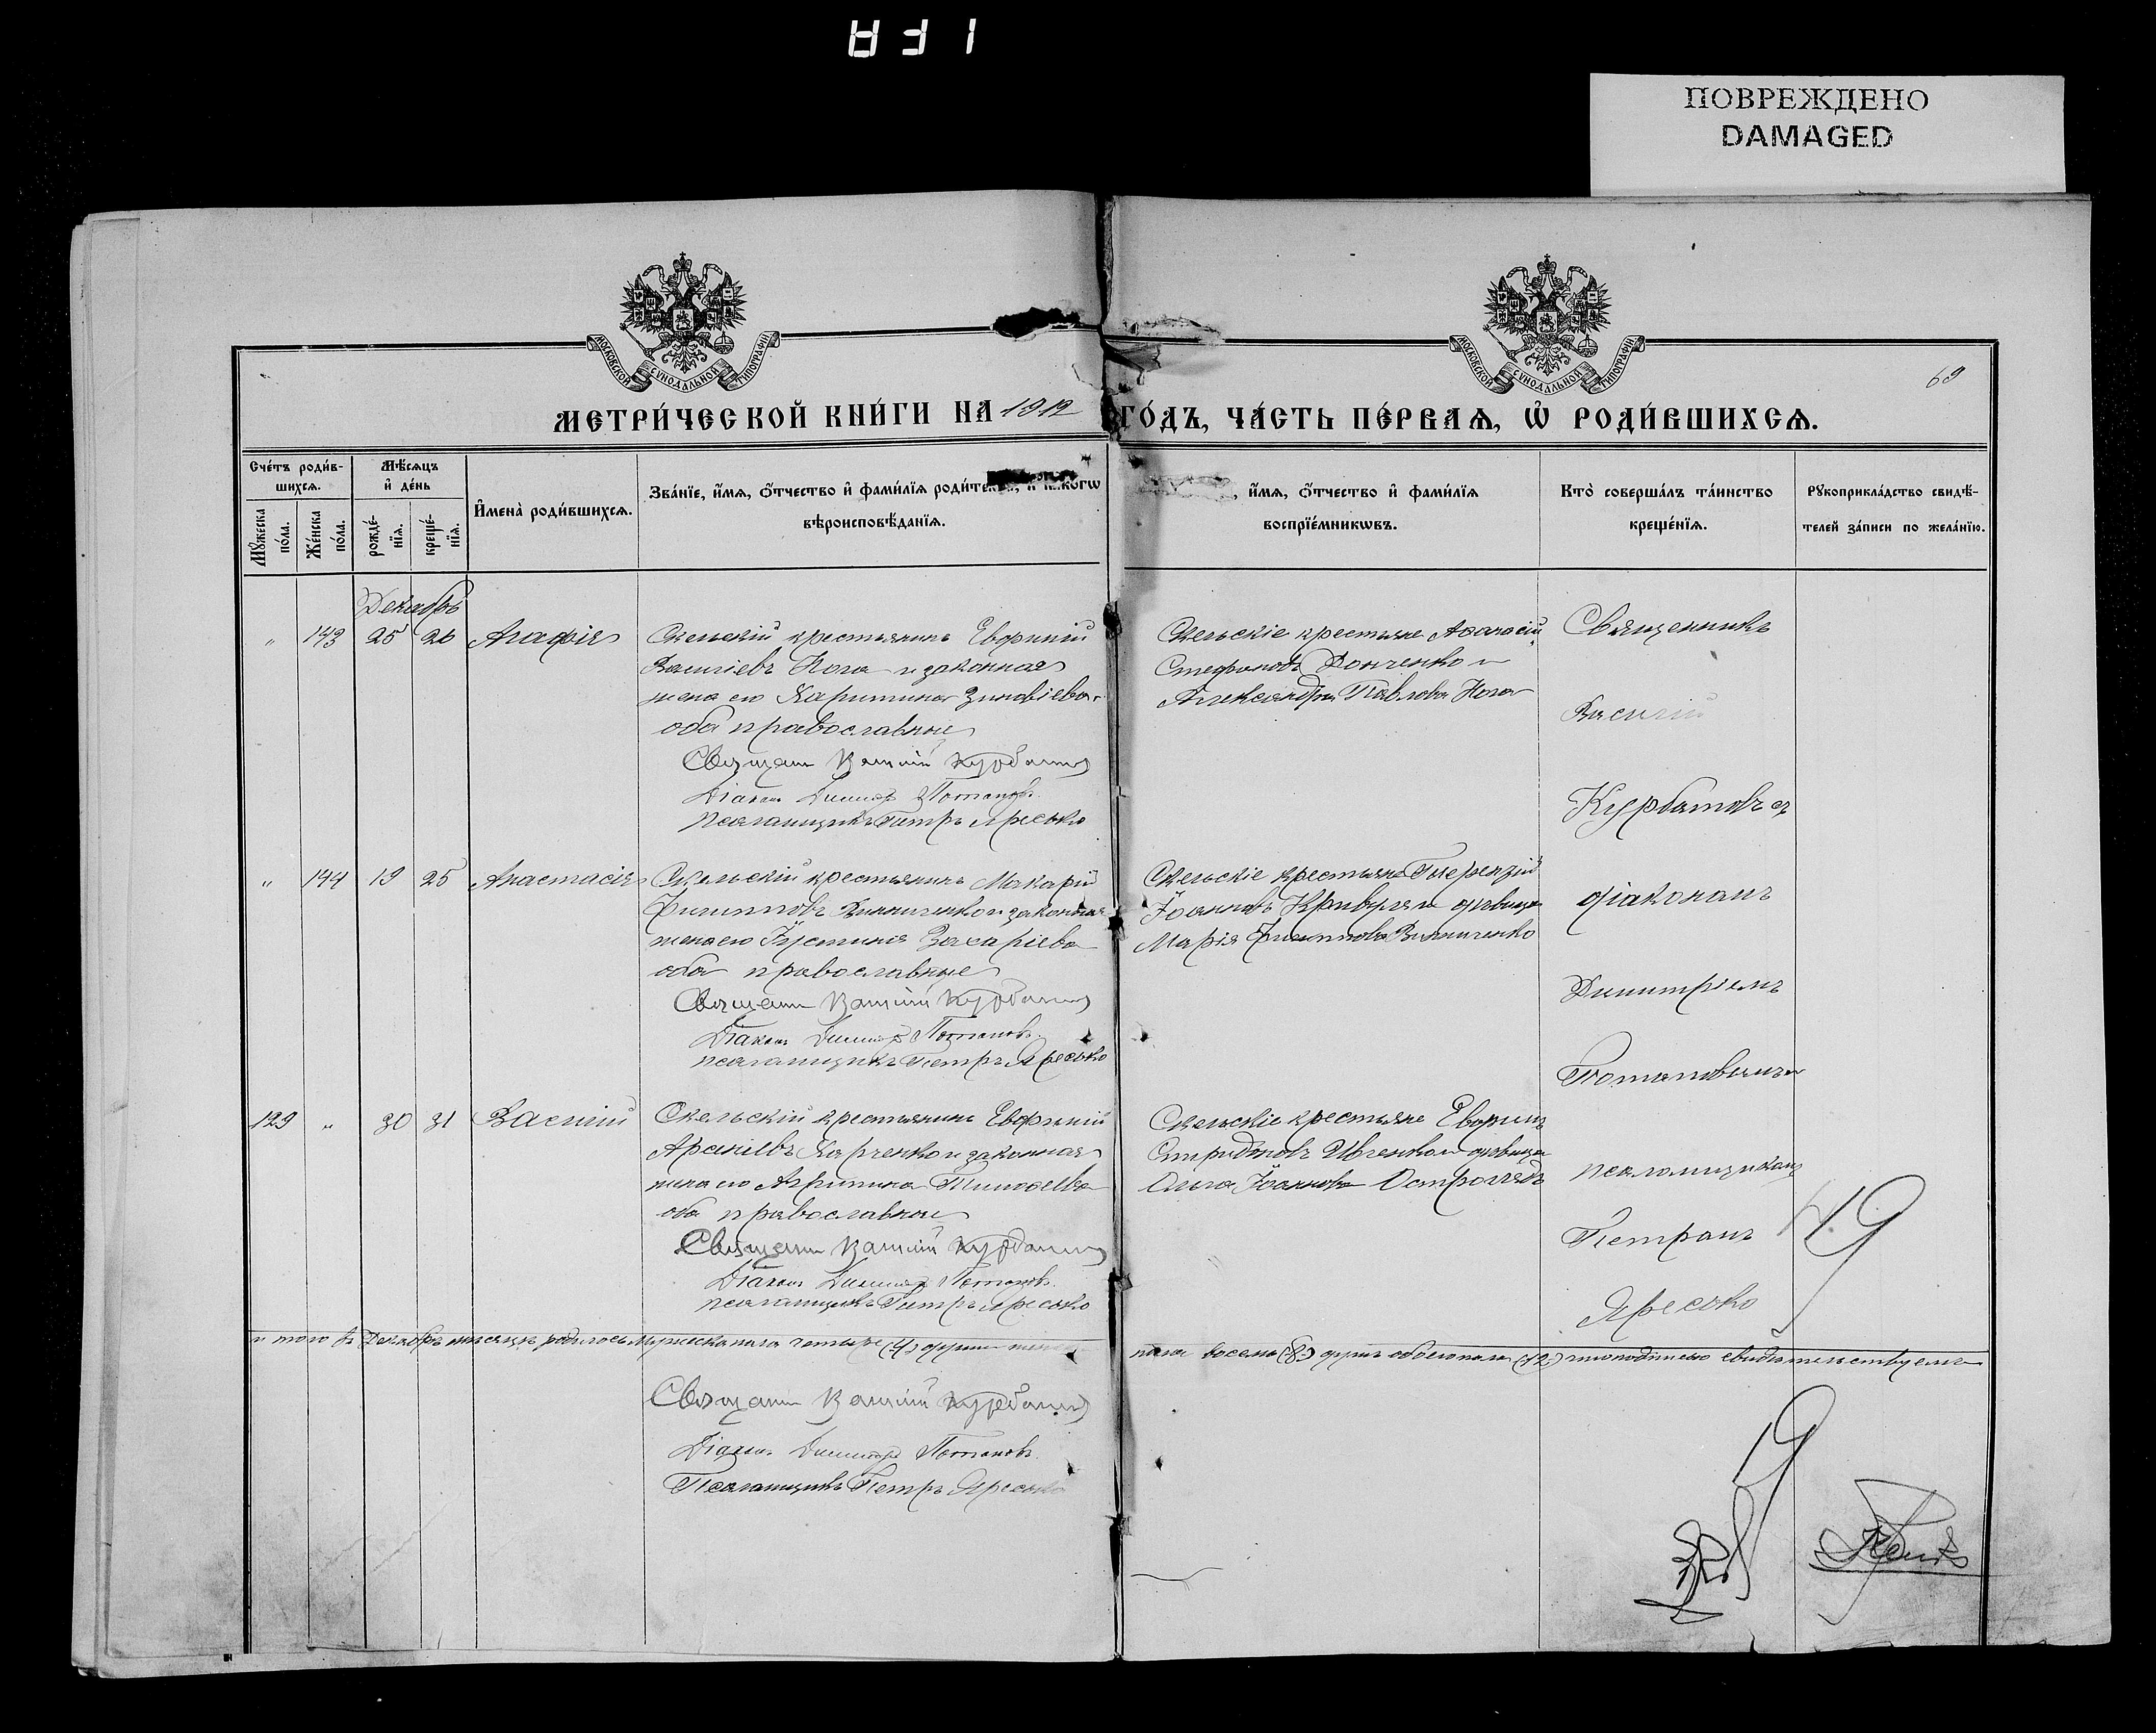 ПОВРЕЖДЕНО
DAMAGED
МОСКОВСКОЙ СѴНОДАЛЬНОЙ ТИПОГРАФІИ
МОСКОВСКОЙ СѴНОДАЛЬНОЙ ТИПОГРАФІИ
69
МЕТРИ́ЧЕСКОЙ КНИ́ГИ НА 1912 ГО́ДЪ, ЧА́СТЬ ПЕ́РВАѦ, Ѡ҆ РОДИ́ВШИХСѦ.
Сче́тъ роди́в-
шихсѧ.
Мꙋ́жеска по́ла.
Же́нска по́ла.
Мѣ́сѧцъ
и҆ де́нь
рожде́-
нїѧ.
креще́-
нїѧ.
И҆мена̀ роди́вшихсѧ.
Зва́нїе, и҆́мѧ, ѻ҆́тчество и҆ фами́лїѧ роди́те
вѣроисповѣ́данїѧ.
, и҆́мѧ, ѻ҆́тчество и҆ фами́лїѧ
воспрїе́мникωвъ.
Кто̀ соверша́лъ та́инство
креще́нїѧ.
Рꙋкоприкла́дство свидѣ́-
телей за́писи по жела́нїю.
Декабрь
" 143 25 26 Агафія
Скельскій крестьянинъ Евфимій
Василіевъ Нога и законная
жена его Харитина Зиновіева
оба православные
Священ Василій Курбатов
Діакон Димитр Потаповъ
Псаломщикъ Петръ Яресько
Скельскіе крестьяне Аѳанасій
Стефановъ Донченко и
Александра Павлова Нога
Священникъ
Василій
Курбатовъ съ
" 144 19 25 Анастасія
Скельскій крестьянинъ Макарій
Филипповъ Винниченко и законная
жена его Іустинія Захаріева
оба православные
Священ Василій Курбатов
Діакон Димитр Потаповъ
Псаломщикъ Петръ Яресько
Скельскіе крестьяне
Іоанновъ Кривуля и дѣвица
Марія Филиппова Винниченко
діакономъ
Димитріемъ
Потаповымъ и
129 " 30 31 Василій
Скельскій крестьянинъ Евфимій
Харченко и законная
жена его Агрипина Тимоѳеева
оба православные
Священ Василій Курбатов
Діакон Димитр Потаповъ
Псаломщикъ Петръ Яресько
Скельскіе крестьяне Евфимъ
Ивченко и дѣвица
Ольга Іоаннова
псаломщикомъ
Петромъ
Яресько
Итого въ Декабрѣ мѣсяцѣ родилось мужеска пола четыре (4) женска
пола восемь (8) обоего пола (12) что подписью свидѣтельствуемъ
Священ Василій Курбатов
Діакон Димитр Потаповъ
Псаломщикъ Петръ Яресько